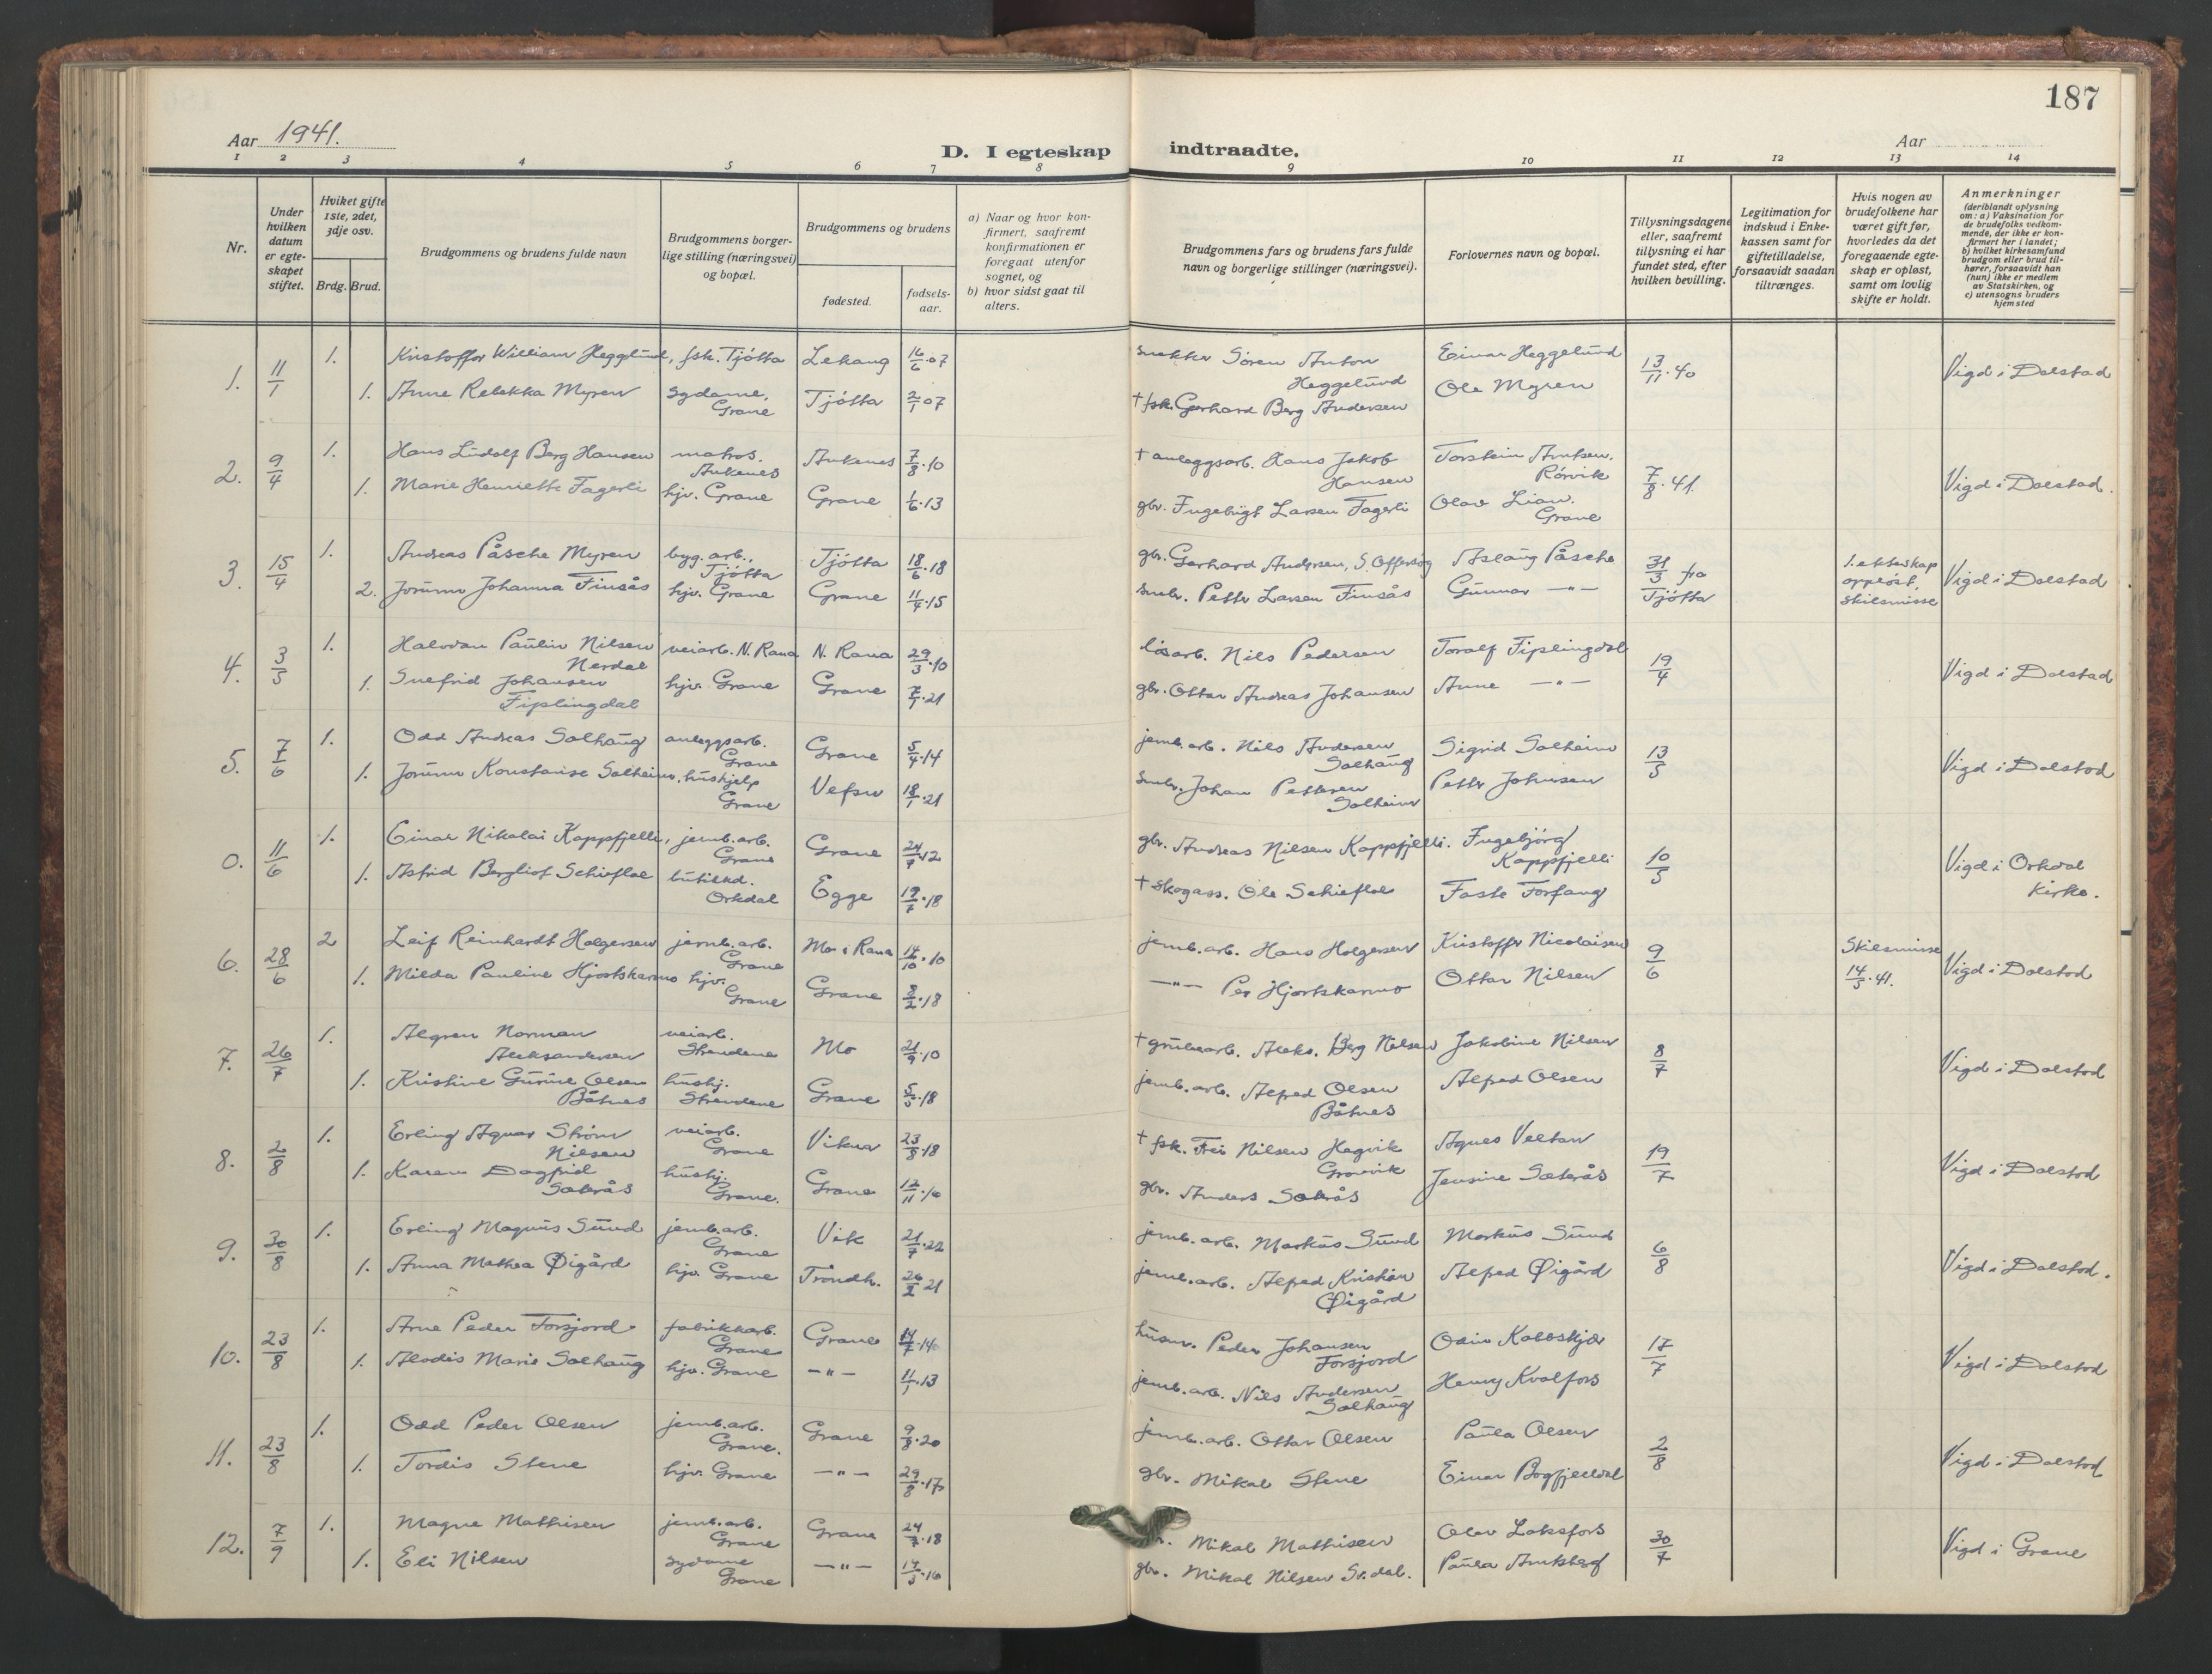 187
Aar 1941.
D. I egteskap indtraadte.
Aar
1 2 3 4 5 6 7 8 9 10 11 12 13 14
Nr.
Under hvilken datum er egteskapet stiftet.
Hviket gifte 1ste, 2det, 3dje osv.
Brdg. Brud.
Brudgommens og brudens fulde navn
Brudgommens borgerlige stilling (næringsvei) og bopæl.
Brudgommens og brudens
fødested.
fødselsaar.
a) Naar og hvor konfirmert, saafremt konfirmationen er foregaat utenfor sognet, og
b) hvor sidst gaat til alters.
Brudgommens fars og brudens fars fulde navn og borgerlige stillinger (næringsvei).
Forlovernes navn og bopæl.
Tillysningsdagene eller, saafremt tillysning ei har fundet sted, efter hvilken bevilling.
Legitimation for indskud i Enkekassen samt for giftetilladelse, forsaavidt saadan tiltrænges.
Hvis nogen av brudefolkene har været gift før, hvorledes da det foregaaende egteskap er opløst, samt om lovlig skifte er holdt.
Anmerkninger (deriblandt oplysning om: a) Vaksination for de brudefolks vedkommende, der ikke er konfirmert her i landet; b) hvilket kirkesamfund brudgom eller brud tilhører, forsaavidt han (hun) ikke er medlem av Statskirken, og c) utensogns bruders hjemsted
1. 11/1 1. Kristoffer William Heggelund, fsk. Tjøtta Lekang 16/6.07 snekker Søren Anton Heggelund Einar Heggelund 13/11.40 Vigd i Dolstad
1. Anne Rebekka Myren sydame, Grane Tjøtta 2/1 07 † fsk. Gerhard Berg Andersen Ole Myren
2. 9/4 1. Hans Ludolf Berg Hansen matros. Ankenes Ankenes 7/8.10 † anleggsarb. Hans Jakob Hansen Torstein Arntsen, Rørvik 7/8.41. Vigd i Dolstad.
1. Marie Henriette Fagerli hjv. Grane Grane 1/6.13 gbr. Ingebrigt Larsen Fagerli Olav Lian. Grane
3. 15/4 1. Andreas Påsche Myren byg. arb., Tjøtta Tjøtta 18/6.18 gbr. Gerhard Andersen, S. Offersøy Aslaug Påsche 31/3 fra Tjøtta 1. ekteskap oppløst, skilsmisse Vigd i Dolstad
2. Jorunn Johanna Finsås hjv. Grane Grane 11/4.15 smbr. Petter Larsen Finsås Gunnar —"—
4. 3/5 1. Halvdan Paulin Nilsen Nerdal veiarb. N. Rana N. Rana 29/3.10 løsarb. Nils Pedersen Toralf Fiplingdal 19/4 Vigd i Dolstad
1. Snefrid Johansen Fiplingdal hjv. Grane Grane 7/1.21 gbr. Ottar Andreas Johansen Anne —"—
5. 7/6 1. Odd Andreas Solhaug anleggsarb. Grane Grane 5/4.14 jernb. arb. Nils Andersen Solhaug Sigrid Solheim 13/5 Vigd i Dolstad
1. Jorunn Konstanse Solheim, hushjelp Grane Vefsn 18/1.21 smbr. Johan Pettersen Solheim Petter Johnsen
0. 11/6 1. Einar Nikolai Kappfjelli, jernb. arb. Grane Grane 24/7.12 gbr. Andreas Nilsen Kappfjelli. Ingebjørg Kappfjelli 10/5 Vigd i Orkdal Kirke.
1. Astrid Bergliot Schiefloe Orkdal Egge 19/7.18 † skogass. Ole Schiefloe Faste Forfang
6. 28/6 2 Leif Reinhardt Holgersen jernb. arb. Grane Mo i Rana 14/10.10 jernb. arb. Hans Holgersen Kristoffer Nicolaisen 9/6 Skilsmisse 14/5.41. Vigd i Dolstad
1. Milda Pauline Hjortskarmo hjv. Grane Grane 8/2.18 —"— Per Hjortskarmo Ottar Nilsen
7. 26/7 1. Algren Norman Aleksandersen veiarb. Strendene Mo 21/9.10 † grubearb. Aleks. Berg Nilsen Jakobine Nilsen 8/7 Vigd i Dolstad
1. Kristine Gurine Olsen Båtnes hushj. Strendene Grane 5/5.18 jernb. arb. Alfred Olsen Båtnes Alfred Olsen
8. 2/8 1. Erling Agnar Strøm Nilsen veiarb. Grane Vikna 23/8.18 † fsk. Nilsen Hegvik Agnes Veltan 19/7 Vigd i Dolstad
1. Karen Dagfrid Sæterås hushj. Grane. Grane 12/11.16 gbr. Anders Sæterås Jensine Sæterås
9. 30/8 1. Erling Magnus Sund jernb. arb. Grane Vik 21/7.22 jernb. arb. Markus Sund Markus Sund 6/8 Vigd i Dolstad.
1. Anna Mathea Øigård hjv. Grane Trondh. 26/2 21 jernb. arb. Alfred Kristian Øigård Alfred Øigård
10. 23/8 1. Arne Peder Forsjord fabrikkarb. Grane Grane 14/7.14 husm. Peder Johansen Forsjord Odin Kobbskjær 17/7 Vigd i Dolstad
1. Alvdis Marie Solhaug hjv. Grane —"— 11/1.13 jernb. arb. Nils Andersen Solhaug Henry Kvalfors
11. 23/8 1. Odd Peder Olsen jernb. arb. Grane. Grane 9/8.20 jernb. arb. Ottar Olsen Paula Olsen 2/8 Vigd i Dolstad
1. Tordis Stene hjv. Grane —"— 29/8.17 gbr. Mikal Stene Einar Bogfjelldal
12. 7/9 1. Magne Mathisen jernb. arb. Grane Grane 24/7.18 Mikal Mathisen Olav Laksfors 30/7 Vigd i Grane
1. Eli Nilsen sydame Grane —"— 17/3.16 gbr. Mikal Nilsen Sv.dal. Paula Arntsberg